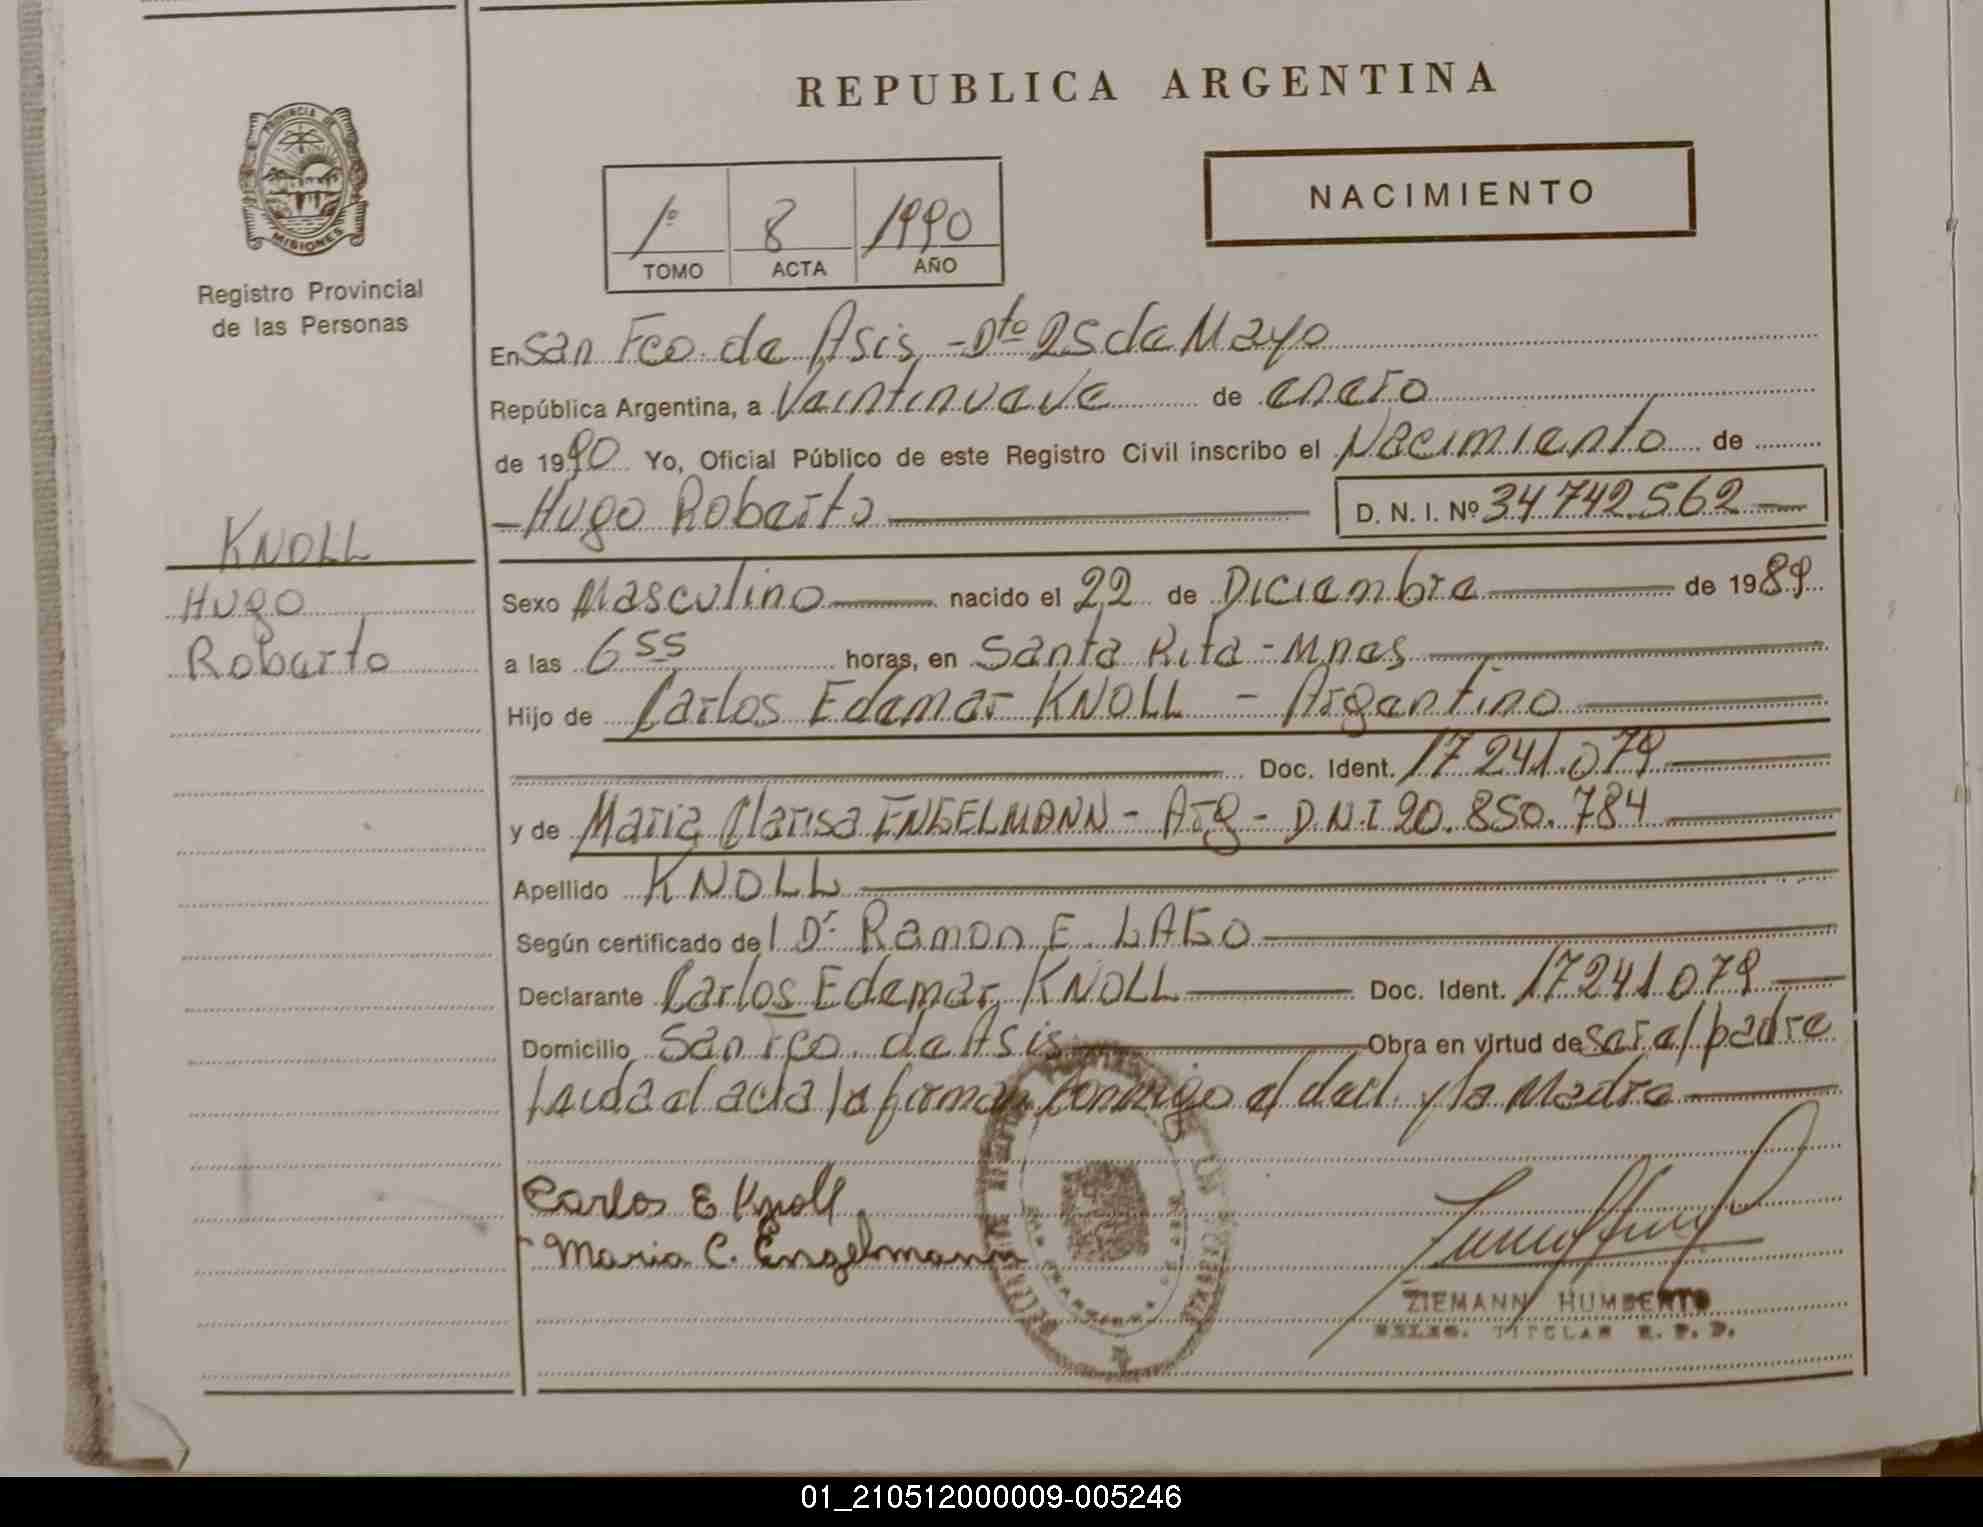 REPUBLICA ARGENTINA
PROVINCIA DE
MISIONES
Registro Provincial
de las Personas
NACIMIENTO
1º 8 1990
TOMO ACTA AÑO
En San Fco. de Asis, - Dto 25 de Mayo
República Argentina, a Veintinueve de enero
de 1990 Yo, Oficial Público de este Registro Civil inscribo el Nacimiento de
- Hugo Roberto D. N. I. Nº 34 742.562
KNOLL
Hugo
Roberto
Sexo Masculino nacido el 22 de Diciembre de 1989
a las 6 55 horas, en Santa Rita - Mnes
Hijo de Carlos Edemar KNOLL - Argentino
Doc. Ident. 17 241.079
y de Maria Clarisa ENGELMANN - Arg - D.N.I 20.850.784
Apellido KNOLL
Según certificado del Dr. Ramon E. LAGO
Declarante Carlos Edemar KNOLL Doc. Ident. 17241079
Domicilio San Fco. de Asis Obra en virtud de ser el padre
Leida el acta la firman conmigo el decl. y la Madre
Carlos E Knoll
Maria C. Engelmann
ZIEMANN HUMBERTO
DELEG. TITULAR R. P. P.
01_210512000009-005246